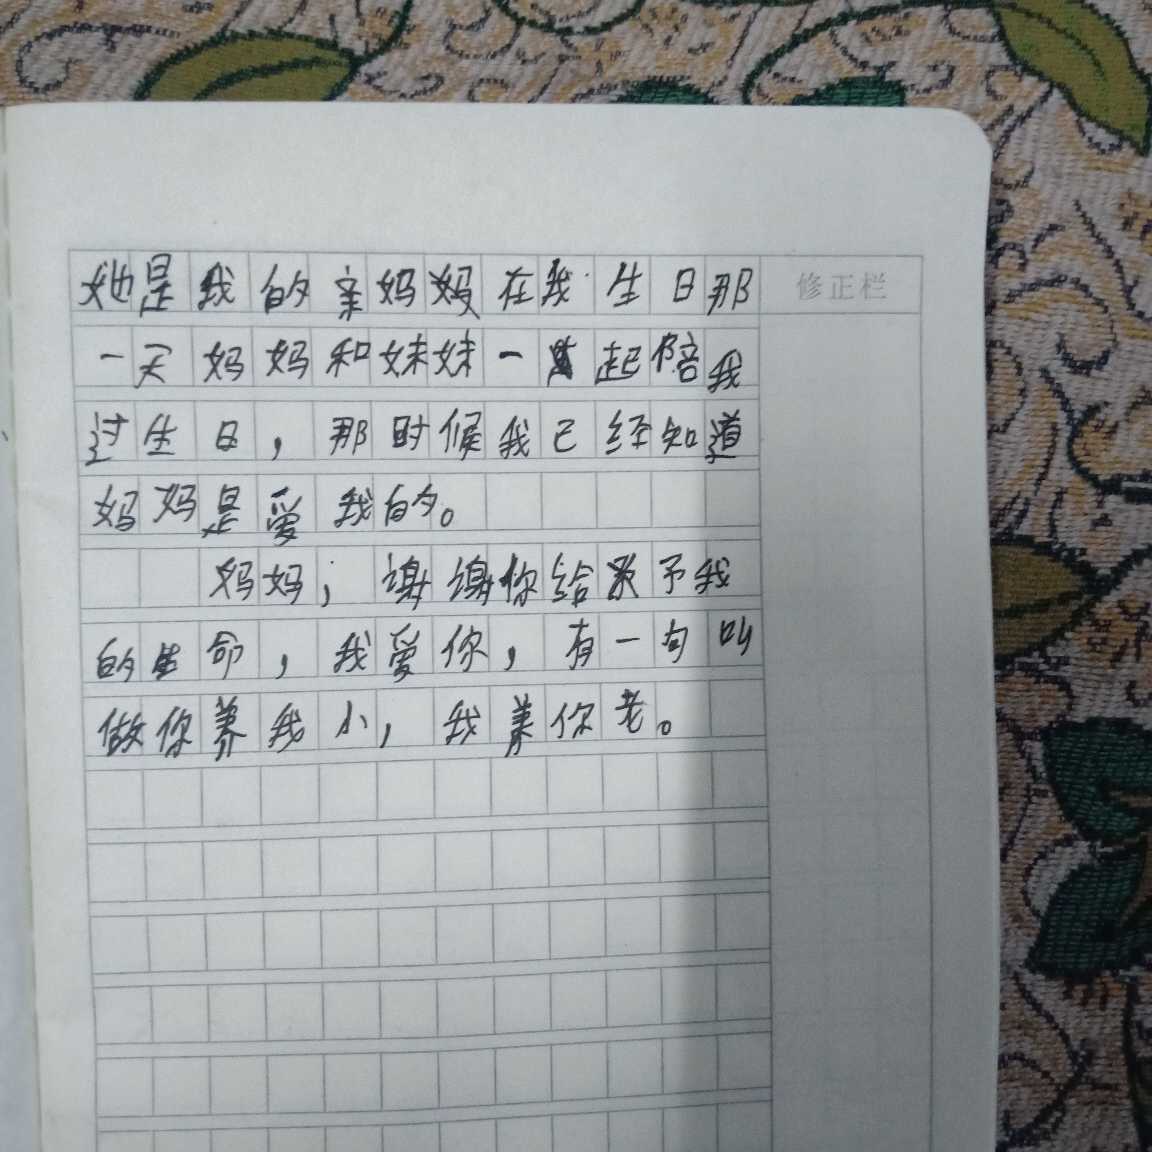 她是我的亲妈妈在我生日那
修正栏
一天妈妈和妹妹一起陪我
过生日，那时候我已经知道
妈妈是爱我的。
妈妈，谢谢你给予我
的生命，我爱你，有一句叫
做你养我小，我养你老。